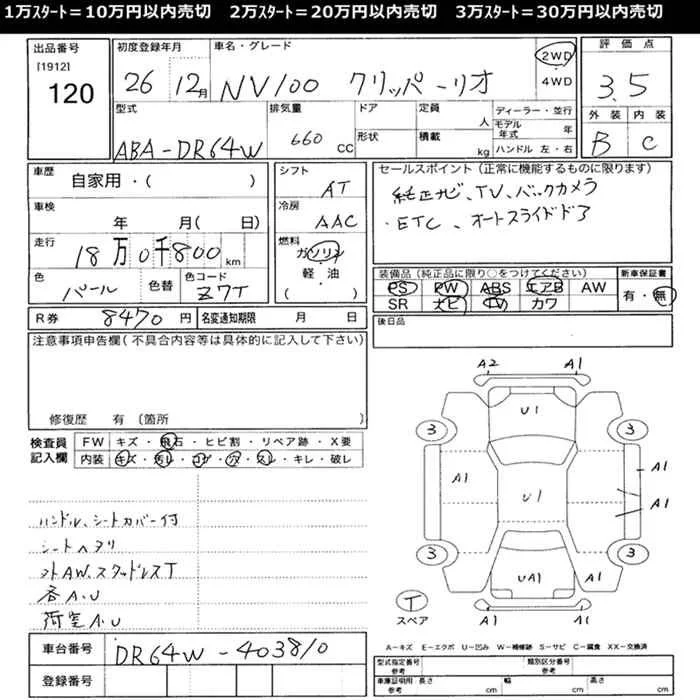 1万ｽﾀｰﾄ＝10万円以内売切　2万ｽﾀｰﾄ＝20万円以内売切　3万ｽﾀｰﾄ＝30万円以内売切
出品番号 初度登録年月 車名・グレード 評価点
[1912]
120 26 12月 NV100 クリッパーリオ 2WD 3.5
4WD
型式 排気量 ドア 定員 人 ディーラー・並行 外装 内装
ABA-DR64W 660 CC 形状 積載 kg モデル年式 年 B C
ハンドル 左・右
車歴 自家用・( )
シフト AT
セールスポイント（正常に機能するものに限ります）
純正ナビ、TV、バックカメラ
・ETC、オートスライドドア
車検 年 月( 日)
冷房 AAC
走行 18万0千800km
燃料 ガソリン
軽・油
( )
色 パール 色替 色コード Z7T
装備品（純正品に限り○をつけてください） 新車保証書
PS PW ABS エアB AW 有・無
SR ナビ TV カワ
R券 8470円 名変通知期限 月 日
後日品
注意事項申告欄（不具合内容等は具体的に記入して下さい）
修復歴 有（箇所 ）
検査員記入欄 FW キズ・飛石・ヒビ割・リペア跡・X要
内装 キズ・汚レ・コゲ・穴・スレ・キレ・破レ
ハンドル、シートカバー付
シートヘタリ
外AW、スタッドレスT
各A.U
荷室A.U
A2 A1
U1
3 3
A1 U1 A1
A1
3 3
UA1 A1
A1 A1
T
スペア
A－キズ E－エクボ U－凹み W－補修跡 S－サビ C－腐食 XX－交換済
車台番号 DR64W-403810
登録番号
型式指定番号 参考 類別区分番号 参考
車庫証明用 参考 長さ cm 幅 cm 高さ cm